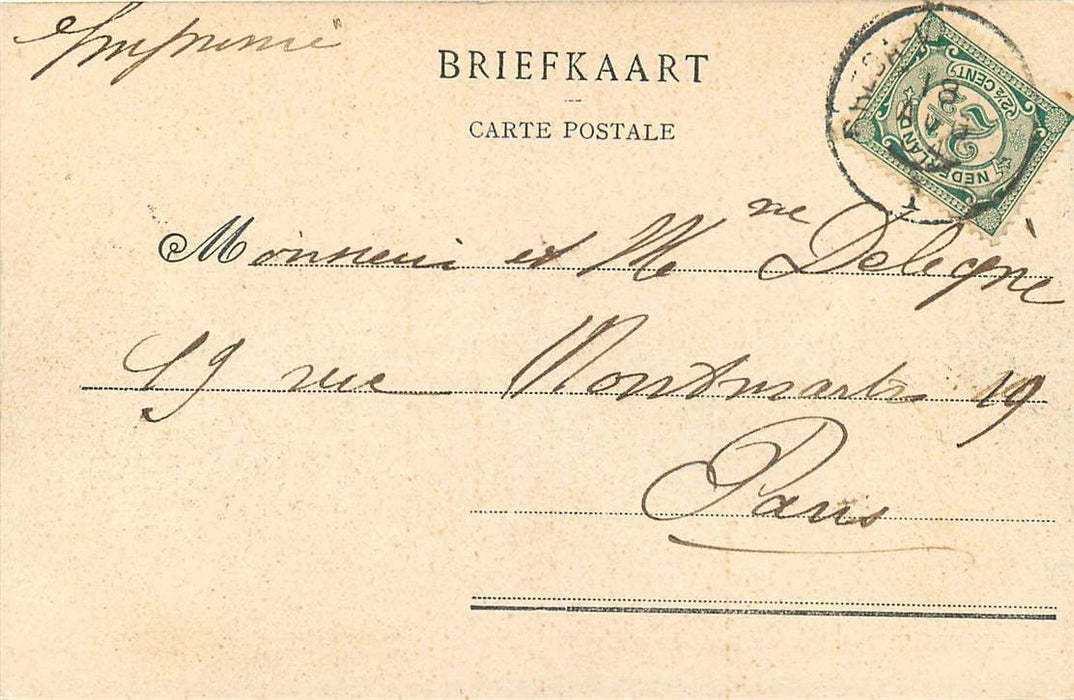 Imprimé
BRIEFKAART
CARTE POSTALE
NEDERLAND
2½
2½ CENT
Monsieur et Mme Delegné
19 rue Montmartre 19
Paris